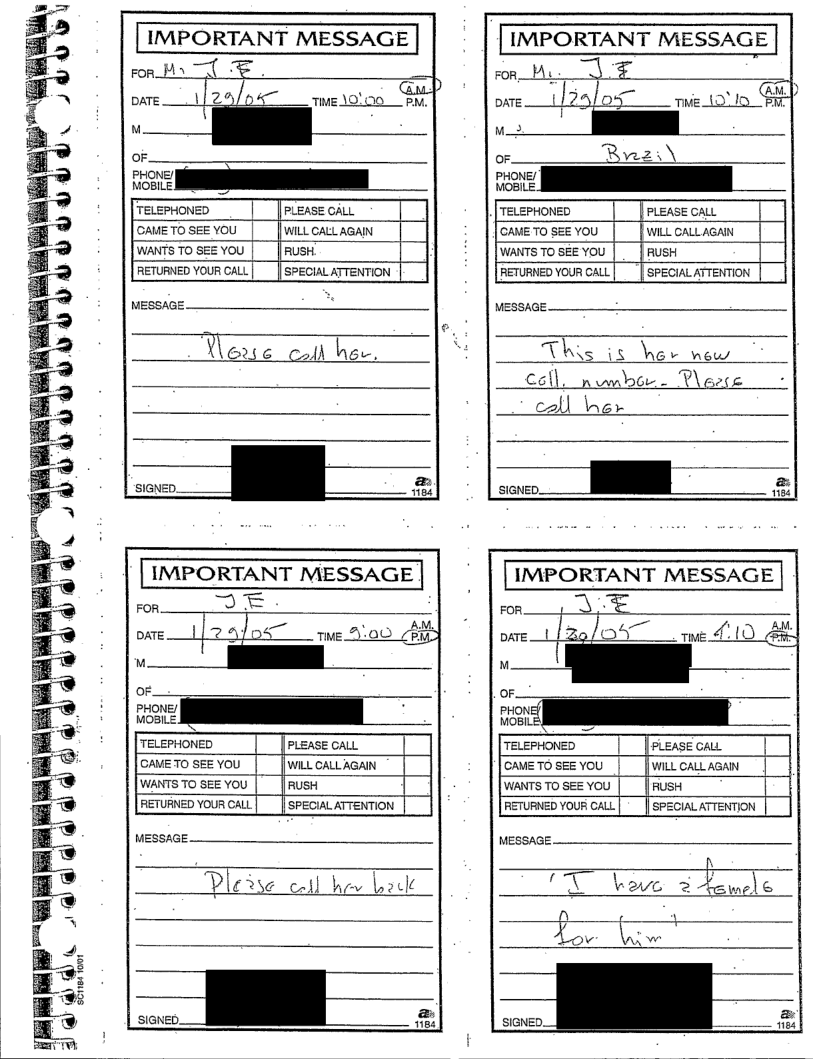 IMPORTANT MESSAGE
FOR Mr J.E.
DATE 1/29/05 TIME 10:00 A.M. P.M.
M
OF
PHONE/ MOBILE
TELEPHONED PLEASE CALL
CAME TO SEE YOU WILL CALL AGAIN
WANTS TO SEE YOU RUSH
RETURNED YOUR CALL SPECIAL ATTENTION
MESSAGE
Please call her.
SIGNED
a 1184
IMPORTANT MESSAGE
FOR Mr. J.E
DATE 1/29/05 TIME 10:10 A.M. P.M.
M
OF Brazil
PHONE/ MOBILE
TELEPHONED PLEASE CALL
CAME TO SEE YOU WILL CALL AGAIN
WANTS TO SEE YOU RUSH
RETURNED YOUR CALL SPECIAL ATTENTION
MESSAGE
This is her new
cell. number - Please
call her
SIGNED
a 1184
IMPORTANT MESSAGE
FOR J.E.
DATE 1/29/05 TIME 9:00 A.M. P.M.
M
OF
PHONE/ MOBILE
TELEPHONED PLEASE CALL
CAME TO SEE YOU WILL CALL AGAIN
WANTS TO SEE YOU RUSH
RETURNED YOUR CALL SPECIAL ATTENTION
MESSAGE
Please call her back
SIGNED
a 1184
IMPORTANT MESSAGE
FOR J.E
DATE 1/30/05 TIME 1:10 A.M. P.M.
M
OF
PHONE/ MOBILE
TELEPHONED PLEASE CALL
CAME TO SEE YOU WILL CALL AGAIN
WANTS TO SEE YOU RUSH
RETURNED YOUR CALL SPECIAL ATTENTION
MESSAGE
"I have a female
for him"
SIGNED
a 1184
SC1184 10/01